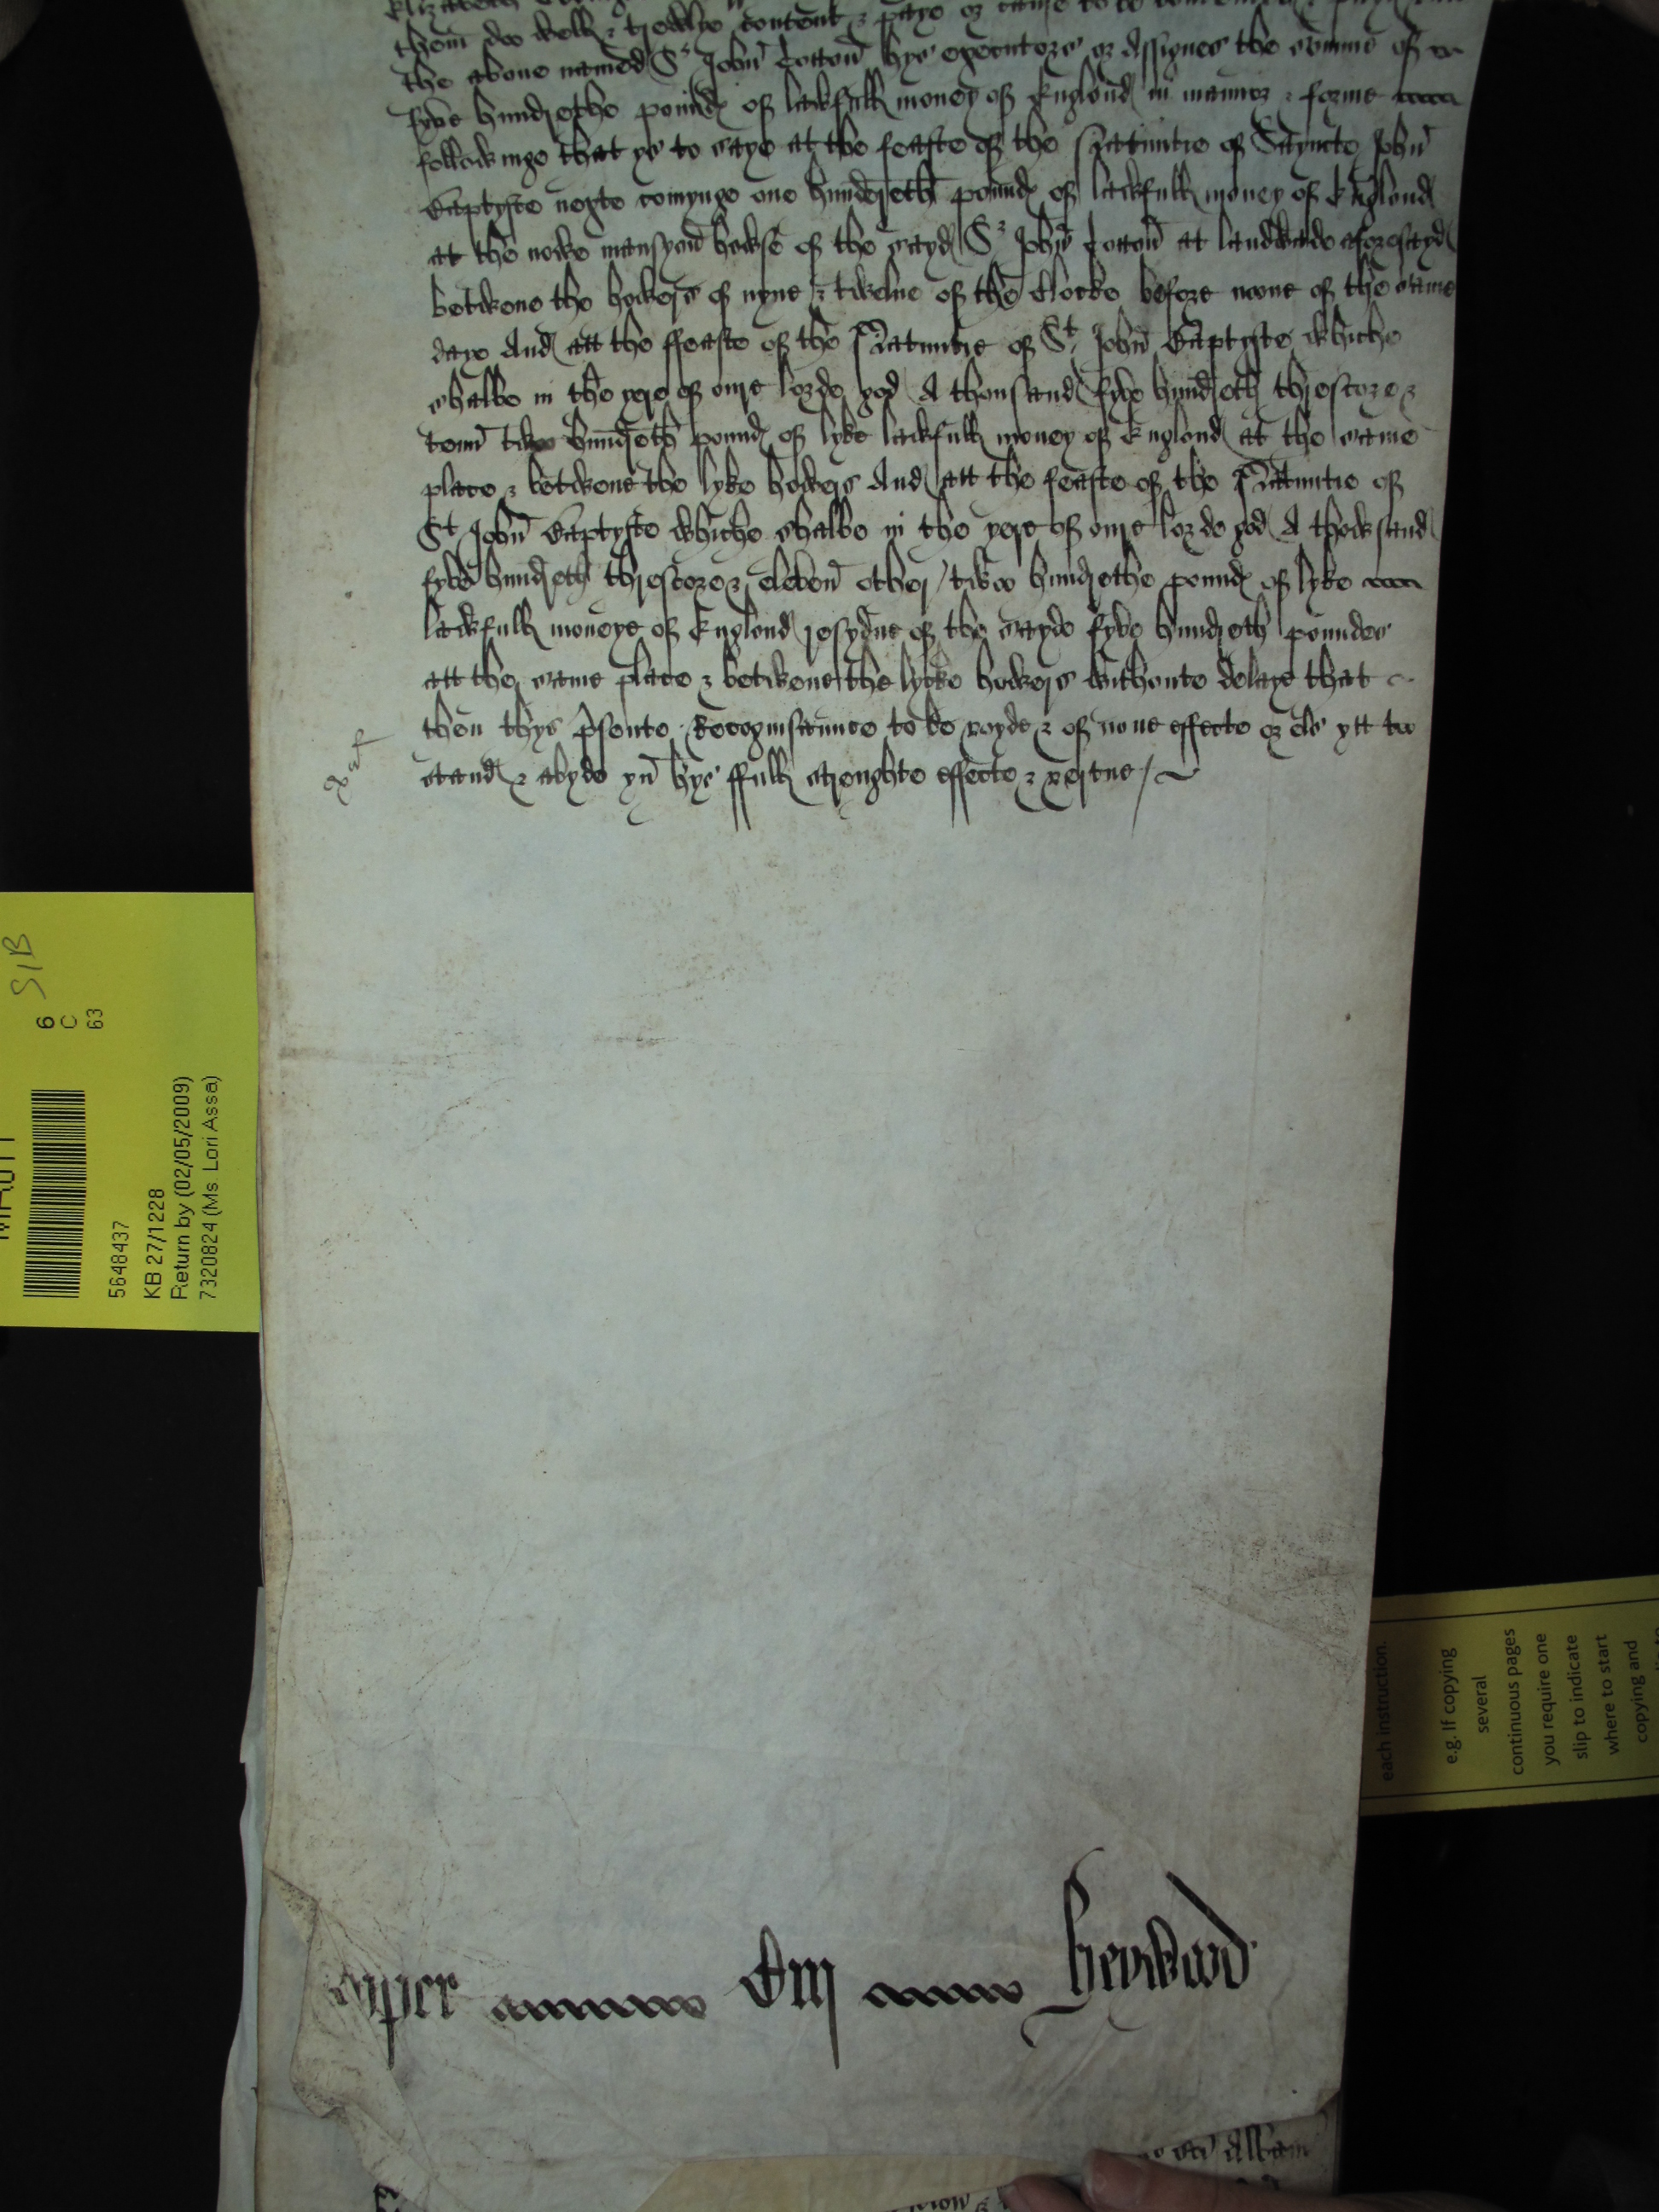 them doo well & trewlye content & paye or cause to be
the above named Sr John Cotton hys executors or Assignes the somme of
fyve hundrethe pound of lawfull money of Englond in manner & forme
followinge that ys to saye at the feaste of the Nativitie of Saynte John
Baptyste nexte comynge one hundreth pound of lawfull money of Englond
at the nowe mansyon howse of the sayd Sr John Cotton at landwade aforesayd
betwene the howers of nyne & twelve of the Clocke before noone of the same
daye And att the ffeaste of the Nativitie of St John Baptyste whiche
shalbe in the yere of oure lorde god A thousand fyve hundreth threscore &
tenn two hundreth pound of lyke lawfull money of Englond at the same
place & betwene the lyke howers And att the feaste of the Nativitie of
St John Baptyste whiche shalbe in the yere of oure lorde god A thowsand
fyve hundreth threscore & eleven other / two hundrethe pound of lyke
lawfull moneye of Englond resydue of the sayde fyve hundreth poundes
att the same place & betwene the lyke howers withoute delaye that
then thys psente Recognisaunce to be voyde & of none effecte or els ytt to
stand & abyde yn hys ffull strenghte effecte & vertue /
6 S1B
C
63
5648437
KB 27/1228
Return by (02/05/2009)
7320824 (Ms. Lori Assa)
each instruction.
e.g. If copying
several
continuous pages
you require one
slip to indicate
where to start
copying and